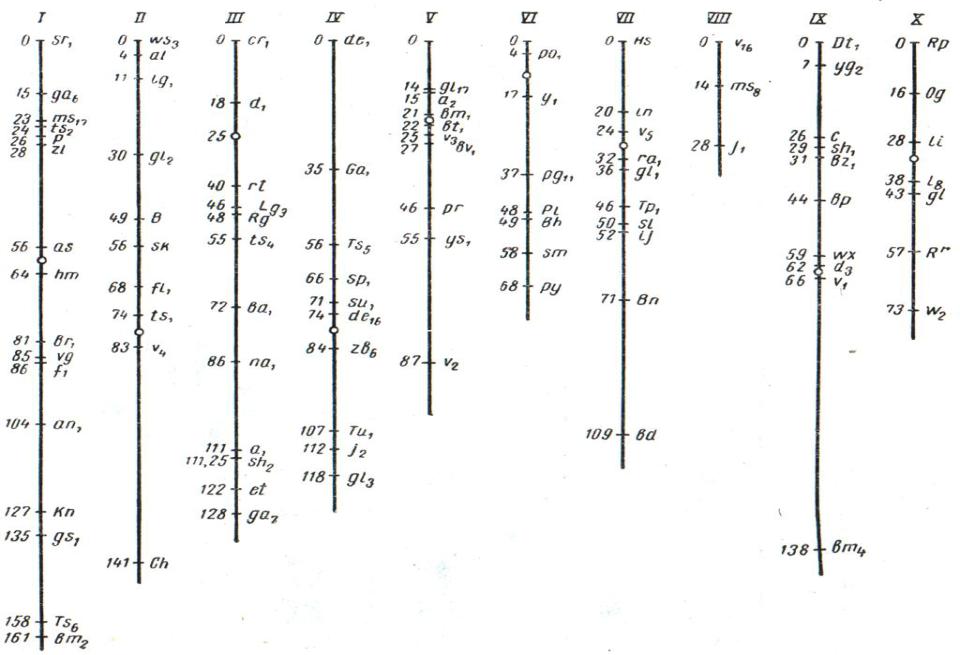 I
0 sr₁
15 ga₆
23 ms₁₇
24 ts₂
26 P
28 zl
56 as
64 hm
81 вr₁
85 vg
86 f₁
104 an₁
127 Kn
135 gs₁
158 Ts₆
161 вm₂
II
0 ws₃
4 al
11 lg₁
30 gl₂
49 B
56 sk
68 fl₁
74 ts₁
83 v₄
141 Ch
III
0 cr₁
18 d₁
25
40 rt
46 Lg₃
48 Rg
55 ts₄
72 вa₁
86 na₁
111 a₁
111,25 sh₂
122 et
128 ga₇
IV
0 de₁
35 Ga₁
56 Ts₅
66 sp₁
71 su₁
74 de₁₆
84 zв₆
107 Tu₁
112 j₂
118 gl₃
V
0
14 gl₁₇
15 a₂
21 вm₁
22 вt₁
25 v₃
27 вv₁
46 pr
55 ys₁
87 v₂
VI
0
4 po₁
17 y₁
37 pg₁₁
48 Pl
49 Bh
58 sm
68 py
VII
0 Hs
20 in
24 v₅
32 ra₁
36 gl₁
46 Tp₁
50 sl
52 ij
71 Bn
109 вd
VIII
0 v₁₆
14 ms₈
28 j₁
IX
0 Dt₁
7 yg₂
26 c₁
29 sh₁
31 вz₁
44 вp
59 wx
62 d₃
66 v₁
138 вm₄
X
0 Rp
16 Og
28 li
38 l₈
43 gl
57 Rʳ
73 w₂